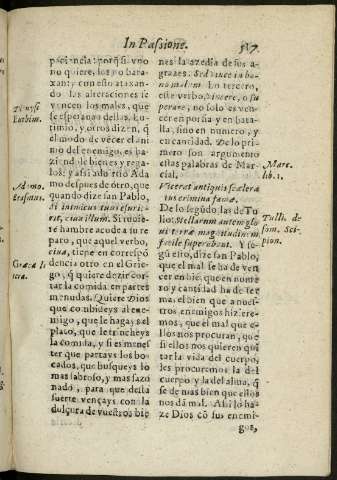 In Passione. 517
paciencia: porq̃ si vno
no quiere, los dos no baraxan;
xan; y con esto atajando
las alteraciones se
vencen los males, que
se esperan dellas. Eutimio,
y otros dizen, q̃
el modo de vẽcer el animo
del enemigo, es haziendole
bienes y regalos:
y assi aduirtio Adamo
despues de otro, que
quando dize san Pablo,
si inimicus tuus esurierit,
ciua illum. Si tuuiere
hambre acude a su reparo,
que aquel verbo,
ciua, tiene en correspõdencia
otro en el Griego,
q̃ quiere dezir cortar
la comida en partes
menudas. Quiere Dios
que combideys al enemigo,
que le hagays el
plato, que le trincheys
la comida, y si es menester
que partays los bocados,
que busqueys lo
mas sabroso, y mas sazonado,
para que desta
suerte vençays con la
dulçura de vuestros bienes
Dionys.
Euthim.
Adamo.
Erasmus.
Græca l-
nes la azedia de sus agrazes.
Sed vince in bono
malum. Lo tercero,
este verbo, vincere, o superare,
no solo es vencer
en porfia y en batalla,
sino en numero, y
en cantidad. De lo primero
son argumento
aquellas palabras de Marcial.
Vicerat antiquis scelera
tus crimina famæ.
De lo segũdo las de Tulio:
Stellarum autem globi
terræ magnitudinem
facile superabant. Y segun
esto, dize san Pablo,
que el mal se ha de vencer
en bie, que en numero
y cantidad ha de ser
mas el bien que a nuestros
enemigos hizieremos,
que el mal que ellos
nos procuran, que
si ellos nos quieren quitar
la vida del cuerpo,
les procuremos la del
cuerpo y la del alma, q̃
se dẽ mas bien que ellos
nos dã mal. Assi lo haze
Dios cõ sus enemigos,
Marc.
lib. 1.
Tulli. de
som. Scipion.